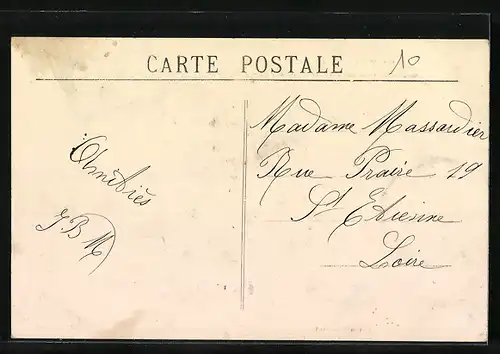 CARTE POSTALE
10
Amitiés
JBM
Madame Massardier
Rue Praire 19
St Etienne
Loire